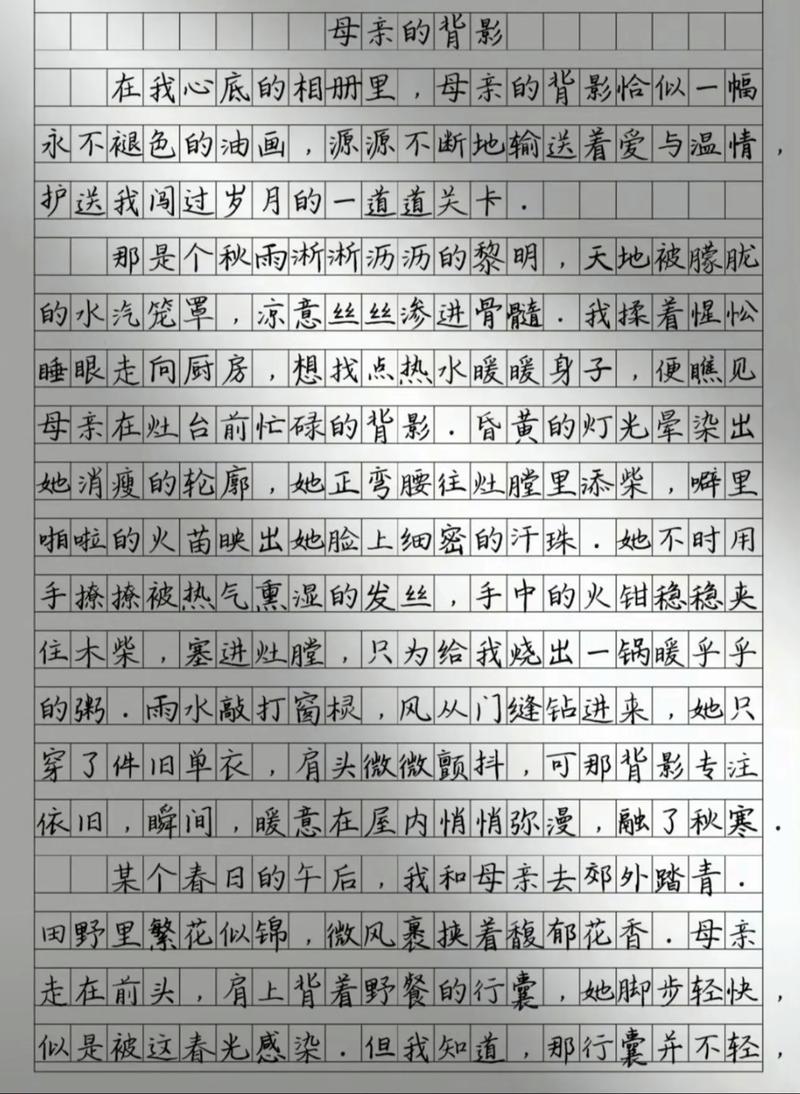 母亲的背影
在我心底的相册里，母亲的背影恰似一幅
永不褪色的油画，源源不断地输送着爱与温情，
护送我闯过岁月的一道道关卡．
那是个秋雨淅淅沥沥的黎明，天地被朦胧
的水汽笼罩，凉意丝丝渗进骨髓．我揉着惺忪
睡眼走向厨房，想找点热水暖暖身子，便瞧见
母亲在灶台前忙碌的背影．昏黄的灯光晕染出
她消瘦的轮廓，她正弯腰往灶膛里添柴，噼里
啪啦的火苗映出她脸上细密的汗珠．她不时用
手撩撩被热气熏湿的发丝，手中的火钳稳稳夹
住木柴，塞进灶膛，只为给我烧出一锅暖乎乎
的粥．雨水敲打窗棂，风从门缝钻进来，她只
穿了件旧单衣，肩头微微颤抖，可那背影专注
依旧，瞬间，暖意在屋内悄悄弥漫，融了秋寒．
某个春日的午后，我和母亲去郊外踏青．
田野里繁花似锦，微风裹挟着馥郁花香．母亲
走在前头，肩上背着野餐的行囊，她脚步轻快，
似是被这春光感染．但我知道，那行囊并不轻，